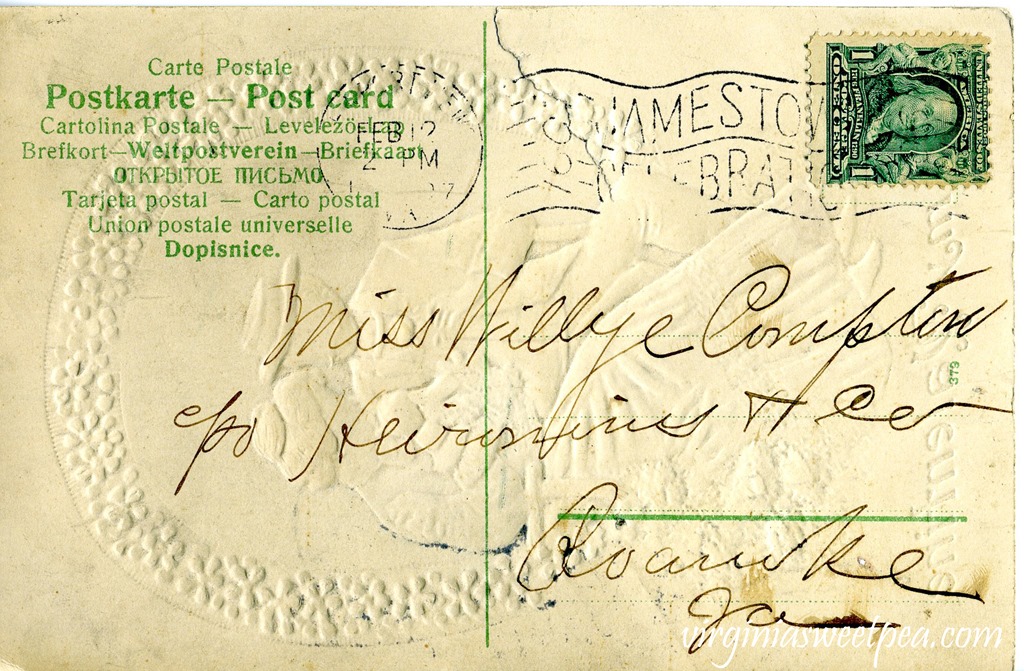 Carte Postale
Postkarte — Post card
Cartolina Postale — Levelező-Lap
Brefkort—Weltpostverein—Briefkaart
ОТКРЫТОЕ ПИСЬМО
Tarjeta postal — Carto postal
Union postale universelle
Dopisnice.
FEB 12
2 PM
VA.
JAMESTOW
CELEBRATIO
1 1
ONE CENT
Miss Willye Compton
c/o Heironimus & Co
Roanoke
Va
379
virginiasweetpea.com